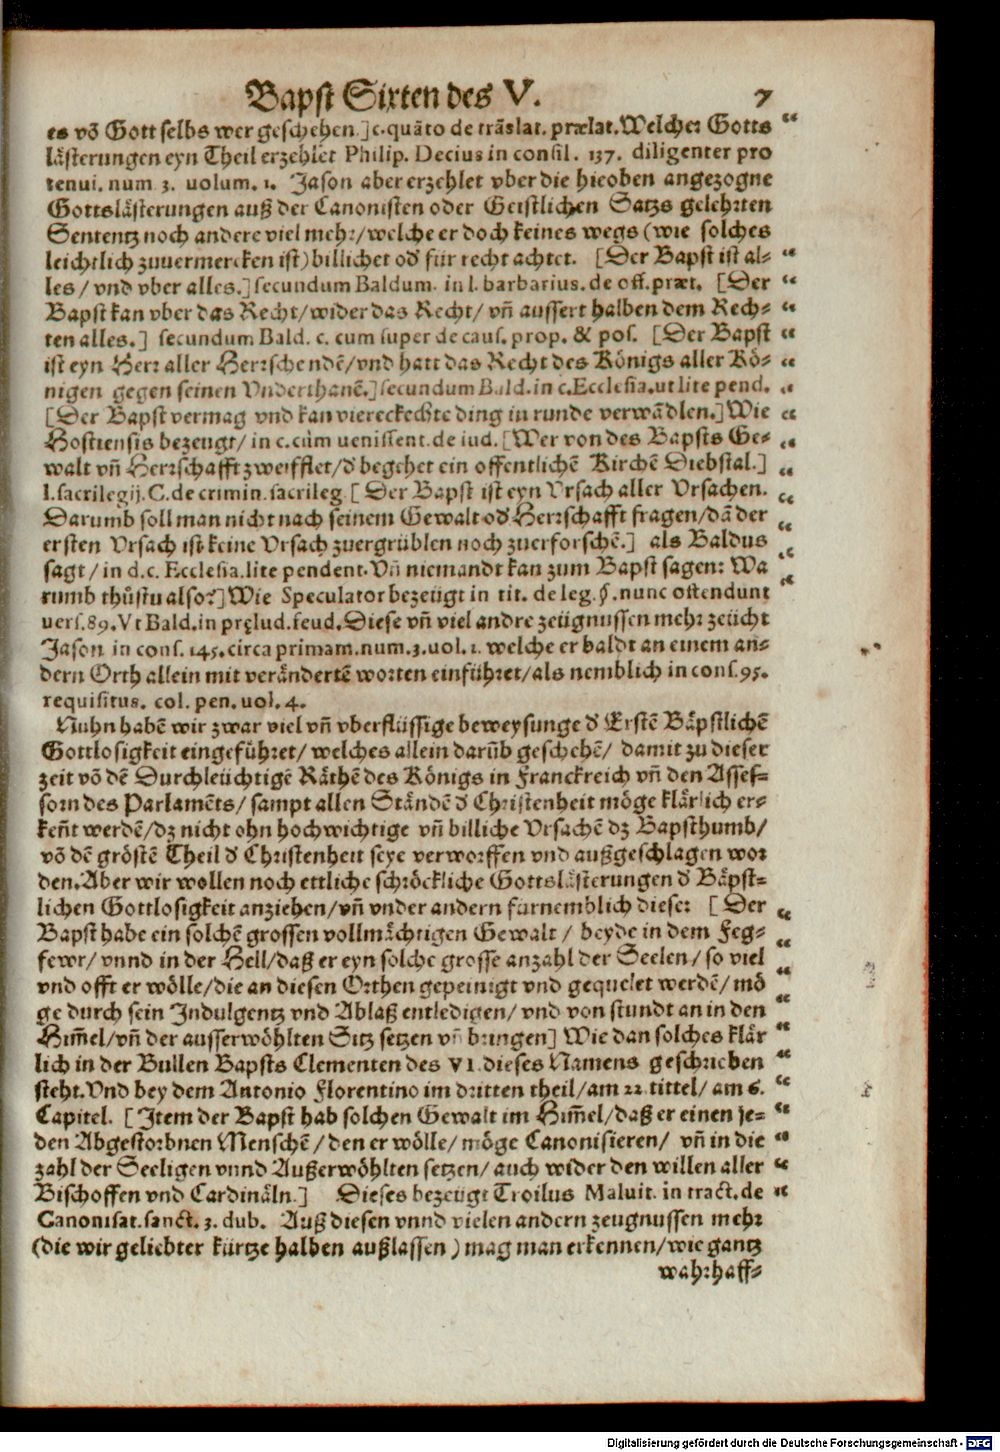 Bapst Sixten des V. 7
es võ Gott selbs wer geschehen.] c. quãto de trãslat. prælat. Welcher Gotts “
lästerungen eyn Theil erzehlet Philip. Decius in consil. 137. diligenter pro
tenui. num. 3. uolum. 1. Jason aber erzehlet vber die hieoben angezogne
Gottslästerungen auß der Canonisten oder Geistlichen Satzs gelehrten
Sententz noch andere viel mehr/welche er doch keines wegs (wie solches
leichtlich zuuermercken ist) billichet oď für recht achtet. [Der Bapst ist al- “
les/ vnd vber alles.] secundum Baldum. in l. barbarius. de off. præt. [Der “
Bapst kan vber das Recht/wider das Recht/ vñ aussert halben dem Rech- “
ten alles.] secundum Bald. c. cum super de caus. prop. & pos. [Der Bapst “
ist eyn Herr aller Herrschendẽ/vnd hatt das Recht des Königs aller Kö- “
nigen gegen seinen Vnderthanẽ.] secundum Bald. in c. Ecclesia. ut lite pend. “
[Der Bapst vermag vnd kan viereckechte ding in runde verwãdlen.] Wie “
Hostiensis bezeugt/ in c. cùm uenissent. de iud. [Wer von des Bapsts Ge- “
walt vñ Herrschafft zweifflet/ď begehet ein offentlichẽ Kirchẽ Diebstal.] “
l. sacrilegij. C. de crimin. sacrileg. [Der Bapst ist eyn Vrsach aller Vrsachen. “
Darumb soll man nicht nach seinem Gewalt oď Herrschafft fragen/dã der “
ersten Vrsach ist keine Vrsach zuergrüblen noch zuerforschẽ.] als Baldus “
sagt/ in d. c. Ecclesia. lite pendent. Vñ niemandt kan zum Bapst sagen: Wa “
rumb thůstu also?] Wie Speculator bezeügt in tit. de leg. §. nunc ostendunt “
vers. 89. Vt Bald. in pręlud. feud. Diese vñ viel andre zeügnussen mehr zeücht
Jason in cons. 145. circa primam. num. 3. uol. 1. welche er baldt an einem an-
dern Orth allein mit verändertẽ worten einführet/als nemblich in cons. 95.
requisitus. col. pen. uol. 4.
Nuhn habẽ wir zwar viel vñ vberflüssige beweysunge ď Erstẽ Bäpstlichẽ
Gottlosigkeit eingeführet/ welches allein darũb geschehẽ/ damit zu dieser
zeit võ dẽ Durchleüchtigẽ Räthẽ des Königs in Franckreich vñ den Asses-
sorn des Parlamẽts/ sampt allen Ständẽ ď Christenheit möge klärlich er-
keñt werdẽ/dz nicht ohn hochwichtige vñ billiche Vrsachẽ dz Bapsthumb/
võ dẽ gröstẽ Theil ď Christenheit seye verworffen vnd außgeschlagen wor
den. Aber wir wollen noch ettliche schröckliche Gottslästerungen ď Bäpst-
lichen Gottlosigkeit anziehen/vñ vnder andern fürnemblich diese: [Der “
Bapst habe ein solchẽ grossen vollmächtigen Gewalt/ beyde in dem Feg- “
fewr/ vnnd in der Hell/daß er eyn solche grosse anzahl der Seelen/ so viel “
vnd offt er wölle/die an diesen Orthen gepeinigt vnd gequelet werdẽ/ mö “
ge durch sein Indulgentz vnd Ablaß entledigen/ vnd von stundt an in den “
Him̃el/vñ der ausserwöhlten Sitz setzen vñ bringen] Wie dan solches klär “
lich in der Bullen Bapsts Clementen des VI. dieses Namens geschrieben “
steht. Vnd bey dem Antonio Florentino im dritten theil/am 22. tittel/ am 6. “
Capitel. [Item der Bapst hab solchen Gewalt im Him̃el/daß er einen je- “
den Abgestorbnen Menschẽ/den er wölle/ möge Canonisieren/ vñ in die “
zahl der Seeligen vnnd Außerwöhlten setzen/ auch wider den willen aller “
Bischoffen vnd Cardinäln.] Dieses bezeügt Troilus Maluit. in tract. de “
Canonisat. sanct. 3. dub. Auß diesen vnnd vielen andern zeugnussen mehr
(die wir geliebter kürtze halben außlassen) mag man erkennen/wie gantz
wahrhaff-
Digitalisierung gefördert durch die Deutsche Forschungsgemeinschaft - DFG